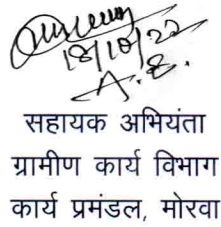 18/10/22
A.E.
सहायक अभियंता
ग्रामीण कार्य विभाग
कार्य प्रमंडल, मोरवा